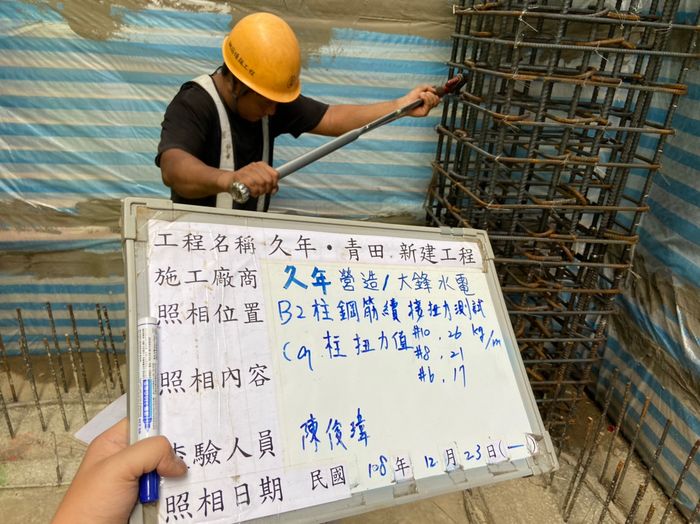 工程名稱 久年·青田 新建工程
施工廠商 久年營造/大鋒水電
照相位置 B2柱鋼筋續接扭力測試
C9柱扭力值 #10.26 kg/m
#8.21
照相內容 #6.17
查驗人員 陳俊瑋
照相日期 民國108年12月23日(一)